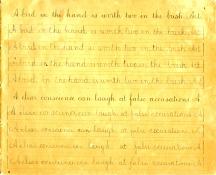 A bird in the hand is worth two in the bush. A bi
A bird in the hand is worth two in the bush.
A bird in the hand is worth two in the bush
A bird in the hand is worth two in the bush
A bird in the hand is worth two in the bush. A
A bird in the hand is worth two in the bush. A
A clear conscience can laugh at false accusations A
A clear conscience can laugh at false accusations. A
A clear conscience can laugh at false accusations
A clear conscience can laugh at false accusations
A clear conscience can laugh at false accusations A